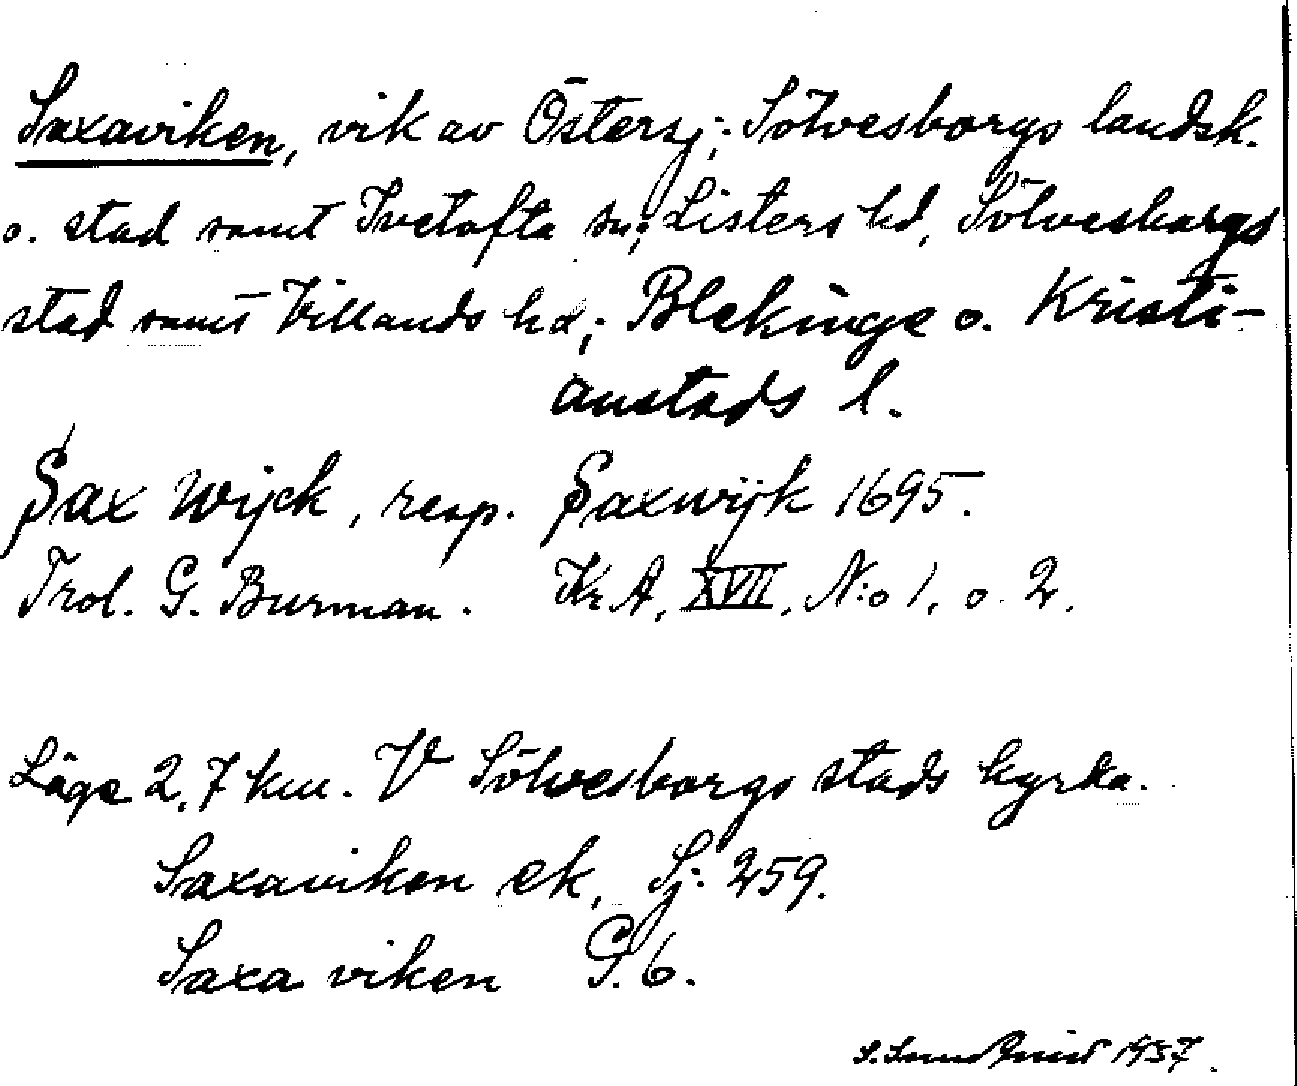 Saxaviken, vik av Östersj; Sölvesborgs landsk.
o. stad samt Ivetofta sn; Listers hd, Sölvesborgs
stad samt Villands hd; Blekinge o. Kristi-
anstads l.
Sax Wijck, resp. Saxwijk 1695.
Trol. G. Burman. Kr A, XVII, N:o 1, o. 2.
Läge 2,7 km. V Sölvesborgs stads kyrka.
Saxaviken ek, Sj. 259.
Saxa viken G. 6.
1937.